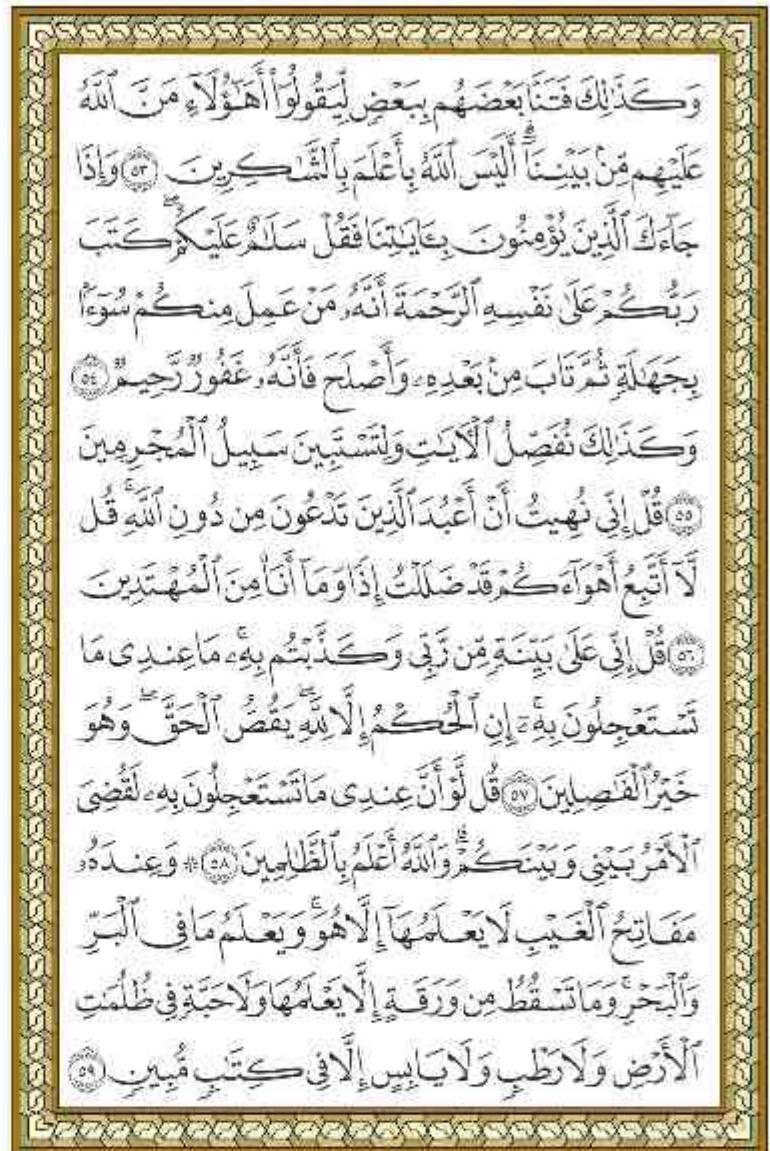 وَكَذَٰلِكَ فَتَنَّا بَعْضَهُم بِبَعْضٍ لِّيَقُولُوٓا۟ أَهَـٰٓؤُلَآءِ مَنَّ ٱللَّهُ
عَلَيْهِم مِّنۢ بَيْنِنَآ ۗ أَلَيْسَ ٱللَّهُ بِأَعْلَمَ بِٱلشَّـٰكِرِينَ ٥٣ وَإِذَا
جَآءَكَ ٱلَّذِينَ يُؤْمِنُونَ بِـَٔايَـٰتِنَا فَقُلْ سَلَـٰمٌ عَلَيْكُمْ ۖ كَتَبَ
رَبُّكُمْ عَلَىٰ نَفْسِهِ ٱلرَّحْمَةَ ۖ أَنَّهُۥ مَنْ عَمِلَ مِنكُمْ سُوٓءًۢا
بِجَهَـٰلَةٍ ثُمَّ تَابَ مِنۢ بَعْدِهِۦ وَأَصْلَحَ فَأَنَّهُۥ غَفُورٌ رَّحِيمٌ ٥٤
وَكَذَٰلِكَ نُفَصِّلُ ٱلْـَٔايَـٰتِ وَلِتَسْتَبِينَ سَبِيلُ ٱلْمُجْرِمِينَ
٥٥ قُلْ إِنِّى نُهِيتُ أَنْ أَعْبُدَ ٱلَّذِينَ تَدْعُونَ مِن دُونِ ٱللَّهِ ۚ قُل
لَّآ أَتَّبِعُ أَهْوَآءَكُمْ ۙ قَدْ ضَلَلْتُ إِذًا وَمَآ أَنَا۠ مِنَ ٱلْمُهْتَدِينَ
٥٦ قُلْ إِنِّى عَلَىٰ بَيِّنَةٍ مِّن رَّبِّى وَكَذَّبْتُم بِهِۦ ۚ مَا عِندِى مَا
تَسْتَعْجِلُونَ بِهِۦٓ ۚ إِنِ ٱلْحُكْمُ إِلَّا لِلَّهِ ۖ يَقُصُّ ٱلْحَقَّ ۖ وَهُوَ
خَيْرُ ٱلْفَـٰصِلِينَ ٥٧ قُل لَّوْ أَنَّ عِندِى مَا تَسْتَعْجِلُونَ بِهِۦ لَقُضِىَ
ٱلْأَمْرُ بَيْنِى وَبَيْنَكُمْ ۗ وَٱللَّهُ أَعْلَمُ بِٱلظَّـٰلِمِينَ ٥٨ ۞ وَعِندَهُۥ
مَفَاتِحُ ٱلْغَيْبِ لَا يَعْلَمُهَآ إِلَّا هُوَ ۚ وَيَعْلَمُ مَا فِى ٱلْبَرِّ
وَٱلْبَحْرِ ۚ وَمَا تَسْقُطُ مِن وَرَقَةٍ إِلَّا يَعْلَمُهَا وَلَا حَبَّةٍ فِى ظُلُمَـٰتِ
ٱلْأَرْضِ وَلَا رَطْبٍ وَلَا يَابِسٍ إِلَّا فِى كِتَـٰبٍ مُّبِينٍ ٥٩